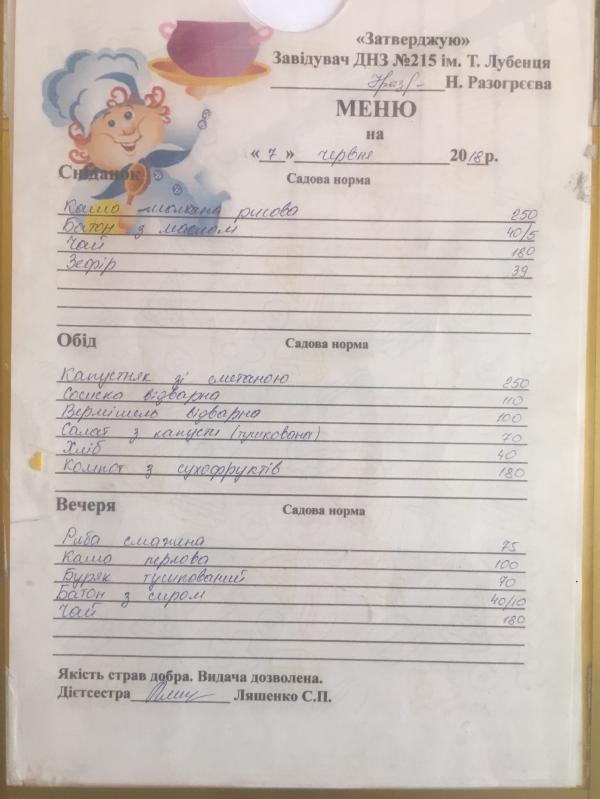 «Затверджую»
Завідувач ДНЗ №215 ім. Т. Лубенця
Н. Разогрєєва
МЕНЮ
на
« 7 » червня 2018р.
Сніданок Садова норма
Каша молочна рисова 250
Батон з маслом 40/5
Чай 180
Зефір 39
Обід Садова норма
Капустняк зі сметаною 250
Сосиска відварна 110
Вермішель відварна 100
Салат з капусти (тушкована) 70
Хліб 40
Компот з сухофруктів 180
Вечеря Садова норма
Риба смажена 75
Каша перлова 100
Буряк тушкований 70
Батон з сиром 40/10
Чай 180
Якість страв добра. Видача дозволена.
Дієтсестра Ляшенко С.П.